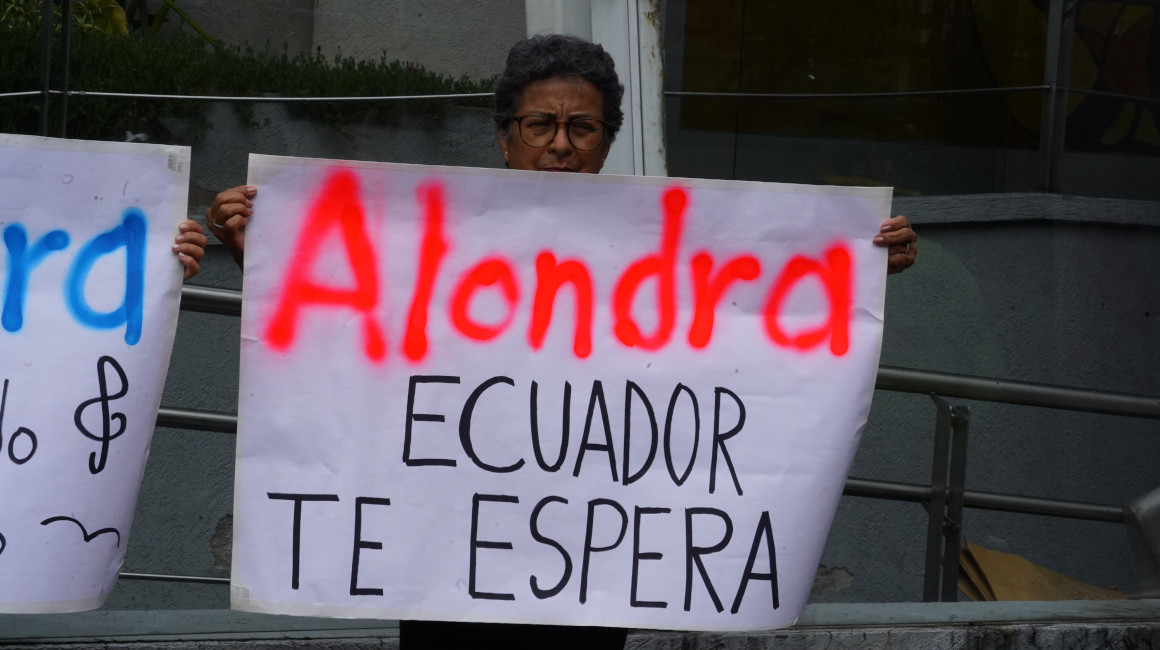 Alondra
ECUADOR
TE ESPERA